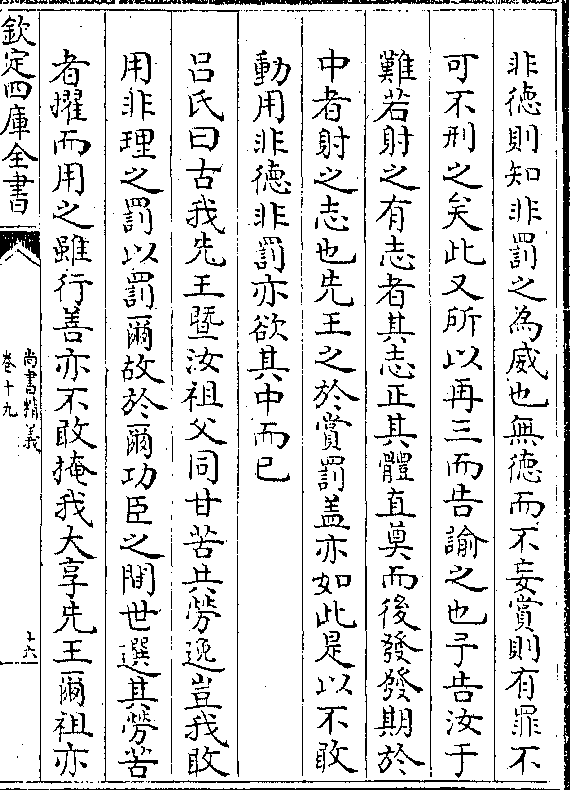 非徳則知非罰之為威也無徳而不妄賞則有罪不
可不刑之矣此又所以再三而告諭之也予告汝于
難若射之有志者其志正其體直奠而後發發期於
中者射之志也先王之於賞罰盖亦如此是以不敢
動用非徳非罰亦欲其中而已
吕氏曰古我先王暨汝祖父同甘苦共勞逸豈我敢
用非理之罰以罰爾故於爾功臣之間世選其勞苦
者擢而用之雖行善亦不敢掩我大享先王爾祖亦
欽定四庫全書
尚書精義
卷十九
十六